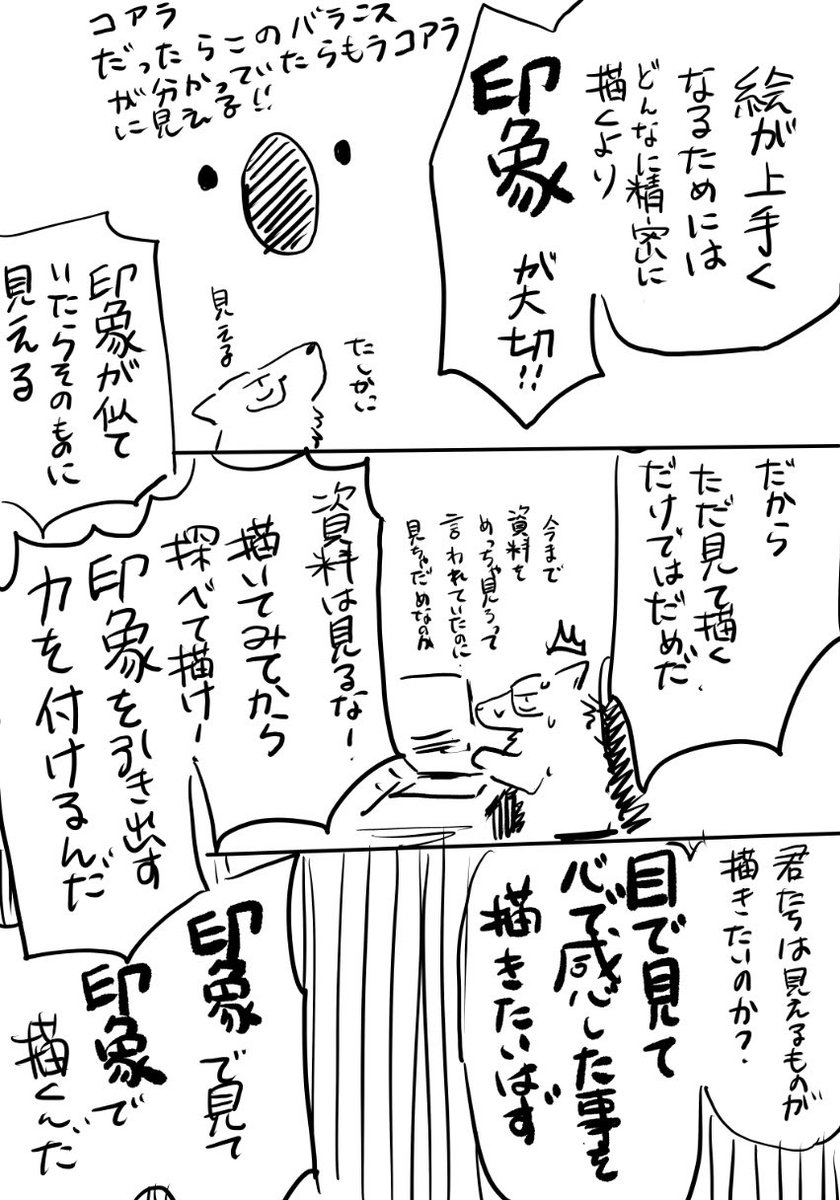 絵が上手く
なるためには
どんなに精密に
描くより
印象
が大切!!
コアラ
だったらこのバランス
が分かっていたらもうコアラ
に見える!!
たしかに
見える
印象が似て
いたらそのものに
見える
だから
ただ見て描く
だけではだめだ
今まで
資料を
めっちゃ見ろって
言われていたのに
見ちゃだめなのか
資料は見るなー
描いてみてから
探べて描けー
印象を引き出す
力を付けるんだ
君たちは見えるものが
描きたいのか?
目で見て
心で感じた事を
描きたいはず
印象で見て
印象で
描くんだ